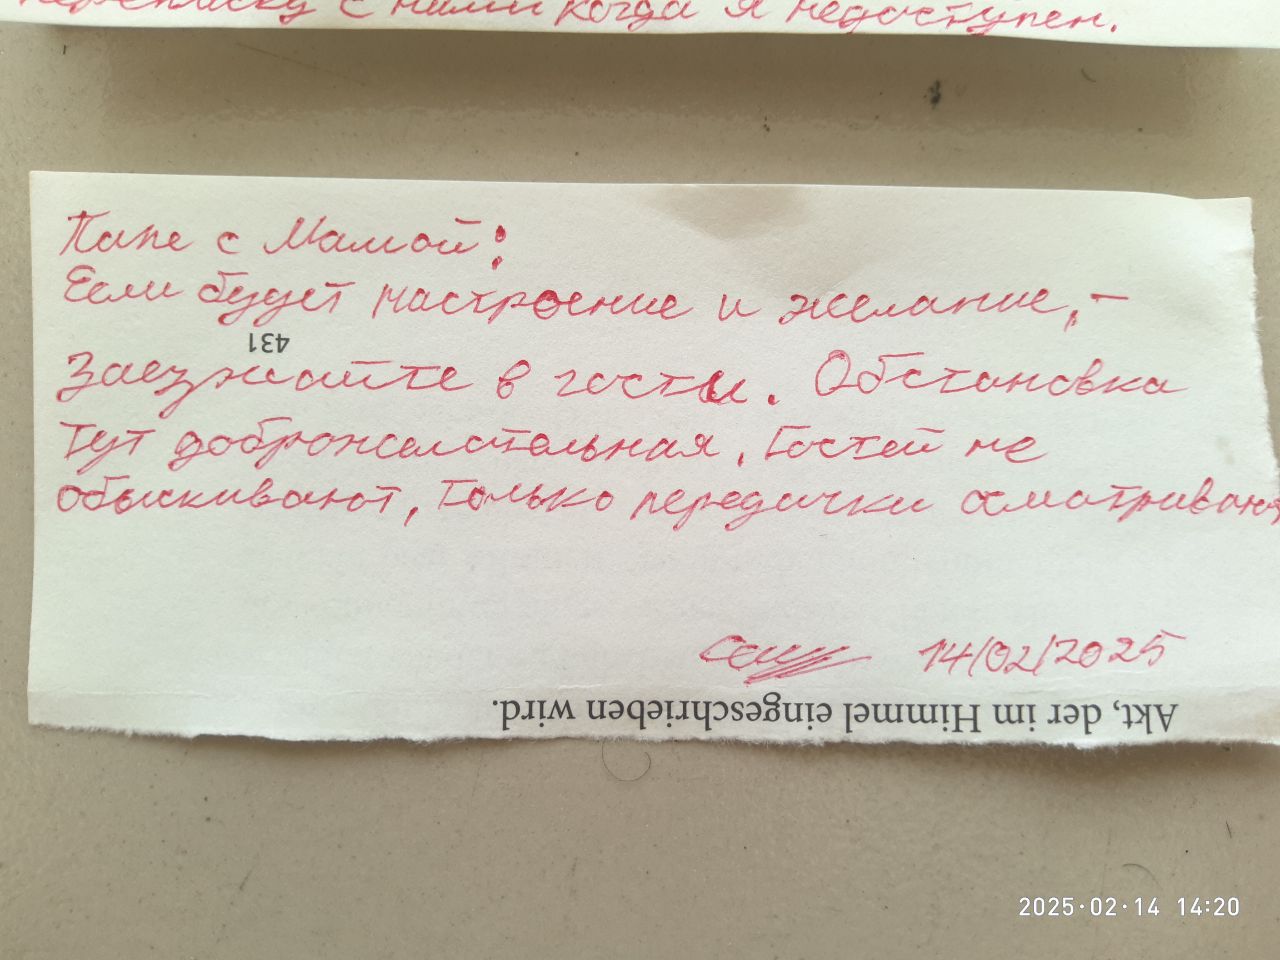 переписку с ними когда я недоступен.
Папе с Мамой:
Если будет настроение и желание, –
431
Заезжайте в гости. Обстановка
тут доброжелательная. Гостей не
обыскивают, только передачки осматривают
14/02/2025
Akt, der im Himmel eingeschrieben wird.
2025·02·14 14:20